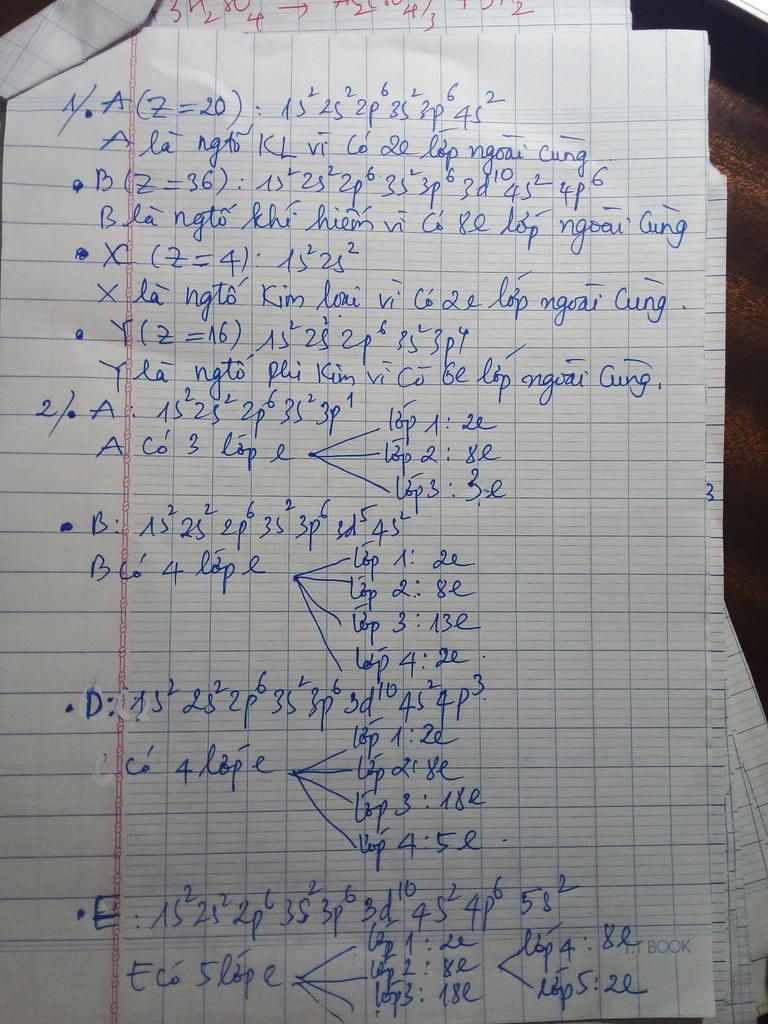 3H₂SO₄ → Al₂(SO₄)₃ + 3H₂
1/. A (Z = 20) : 1s² 2s² 2p⁶ 3s² 3p⁶ 4s²
A là ngtố KL vì có 2e lớp ngoài cùng.
• B (Z = 36) : 1s² 2s² 2p⁶ 3s² 3p⁶ 3d¹⁰ 4s² 4p⁶
B là ngtố khí hiếm vì có 8e lớp ngoài cùng
• X (Z = 4) : 1s² 2s²
X là ngtố Kim loại vì có 2e lớp ngoài cùng.
• Y (Z = 16) 1s² 2s² 2p⁶ 3s² 3p⁴
Y là ngtố phi kim vì có 6e lớp ngoài cùng.
2/. A : 1s² 2s² 2p⁶ 3s² 3p¹
A có 3 lớp e
lớp 1 : 2e
lớp 2 : 8e
lớp 3 : 3e
3
• B : 1s² 2s² 2p⁶ 3s² 3p⁶ 3d⁵ 4s²
B có 4 lớp e
lớp 1 : 2e
lớp 2 : 8e
lớp 3 : 13e
lớp 4 : 2e.
• D : 1s² 2s² 2p⁶ 3s² 3p⁶ 3d¹⁰ 4s² 4p³
có 4 lớp e
lớp 1 : 2e
lớp 2 : 8e
lớp 3 : 18e
lớp 4 : 5e.
• E : 1s² 2s² 2p⁶ 3s² 3p⁶ 3d¹⁰ 4s² 4p⁶ 5s²
E có 5 lớp e
lớp 1 : 2e
lớp 2 : 8e
lớp 3 : 18e
lớp 4 : 8e
lớp 5 : 2e
BOOK